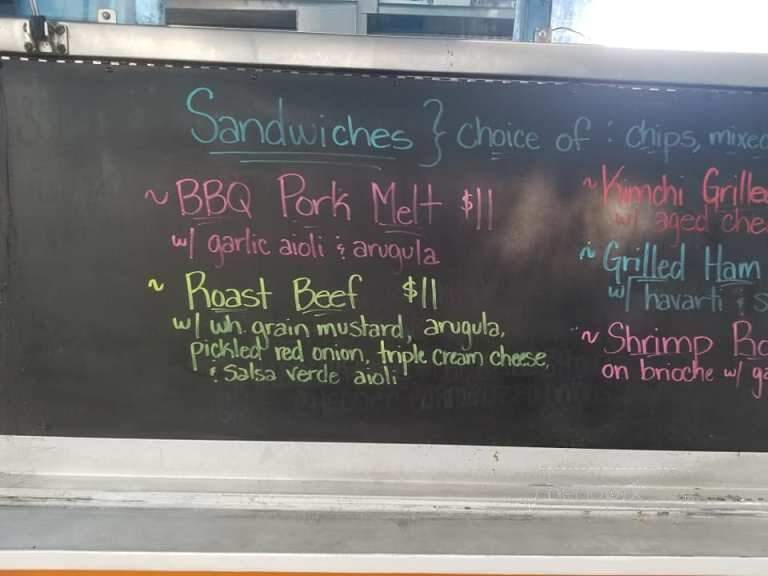 Sandwiches } choice of : chips, mixed
~ BBQ Pork Melt $11
w/ garlic aioli & arugula
~ Roast Beef $11
w/ wh. grain mustard, arugula,
pickled red onion, triple cream cheese,
& Salsa verde aioli
~ Kimchi Grilled
w/ aged che
~ Grilled Ham
w/ havarti & s
~ Shrimp
on brioche w/ ga